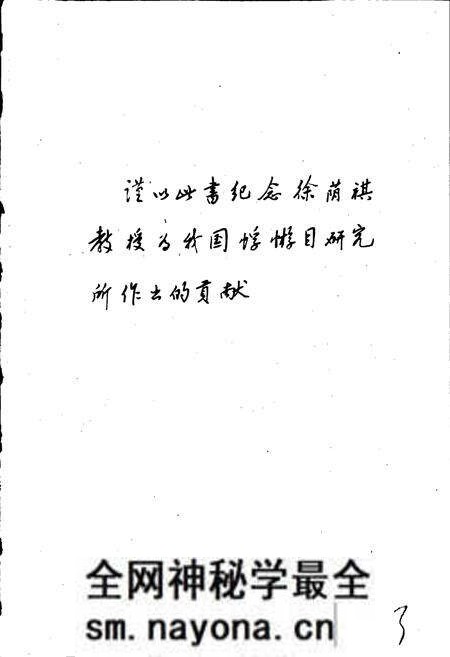 谨以此书纪念徐荫祺
教授为我国蜉蝣目研究
所作出的贡献
全网神秘学最全
sm.nayona.cn